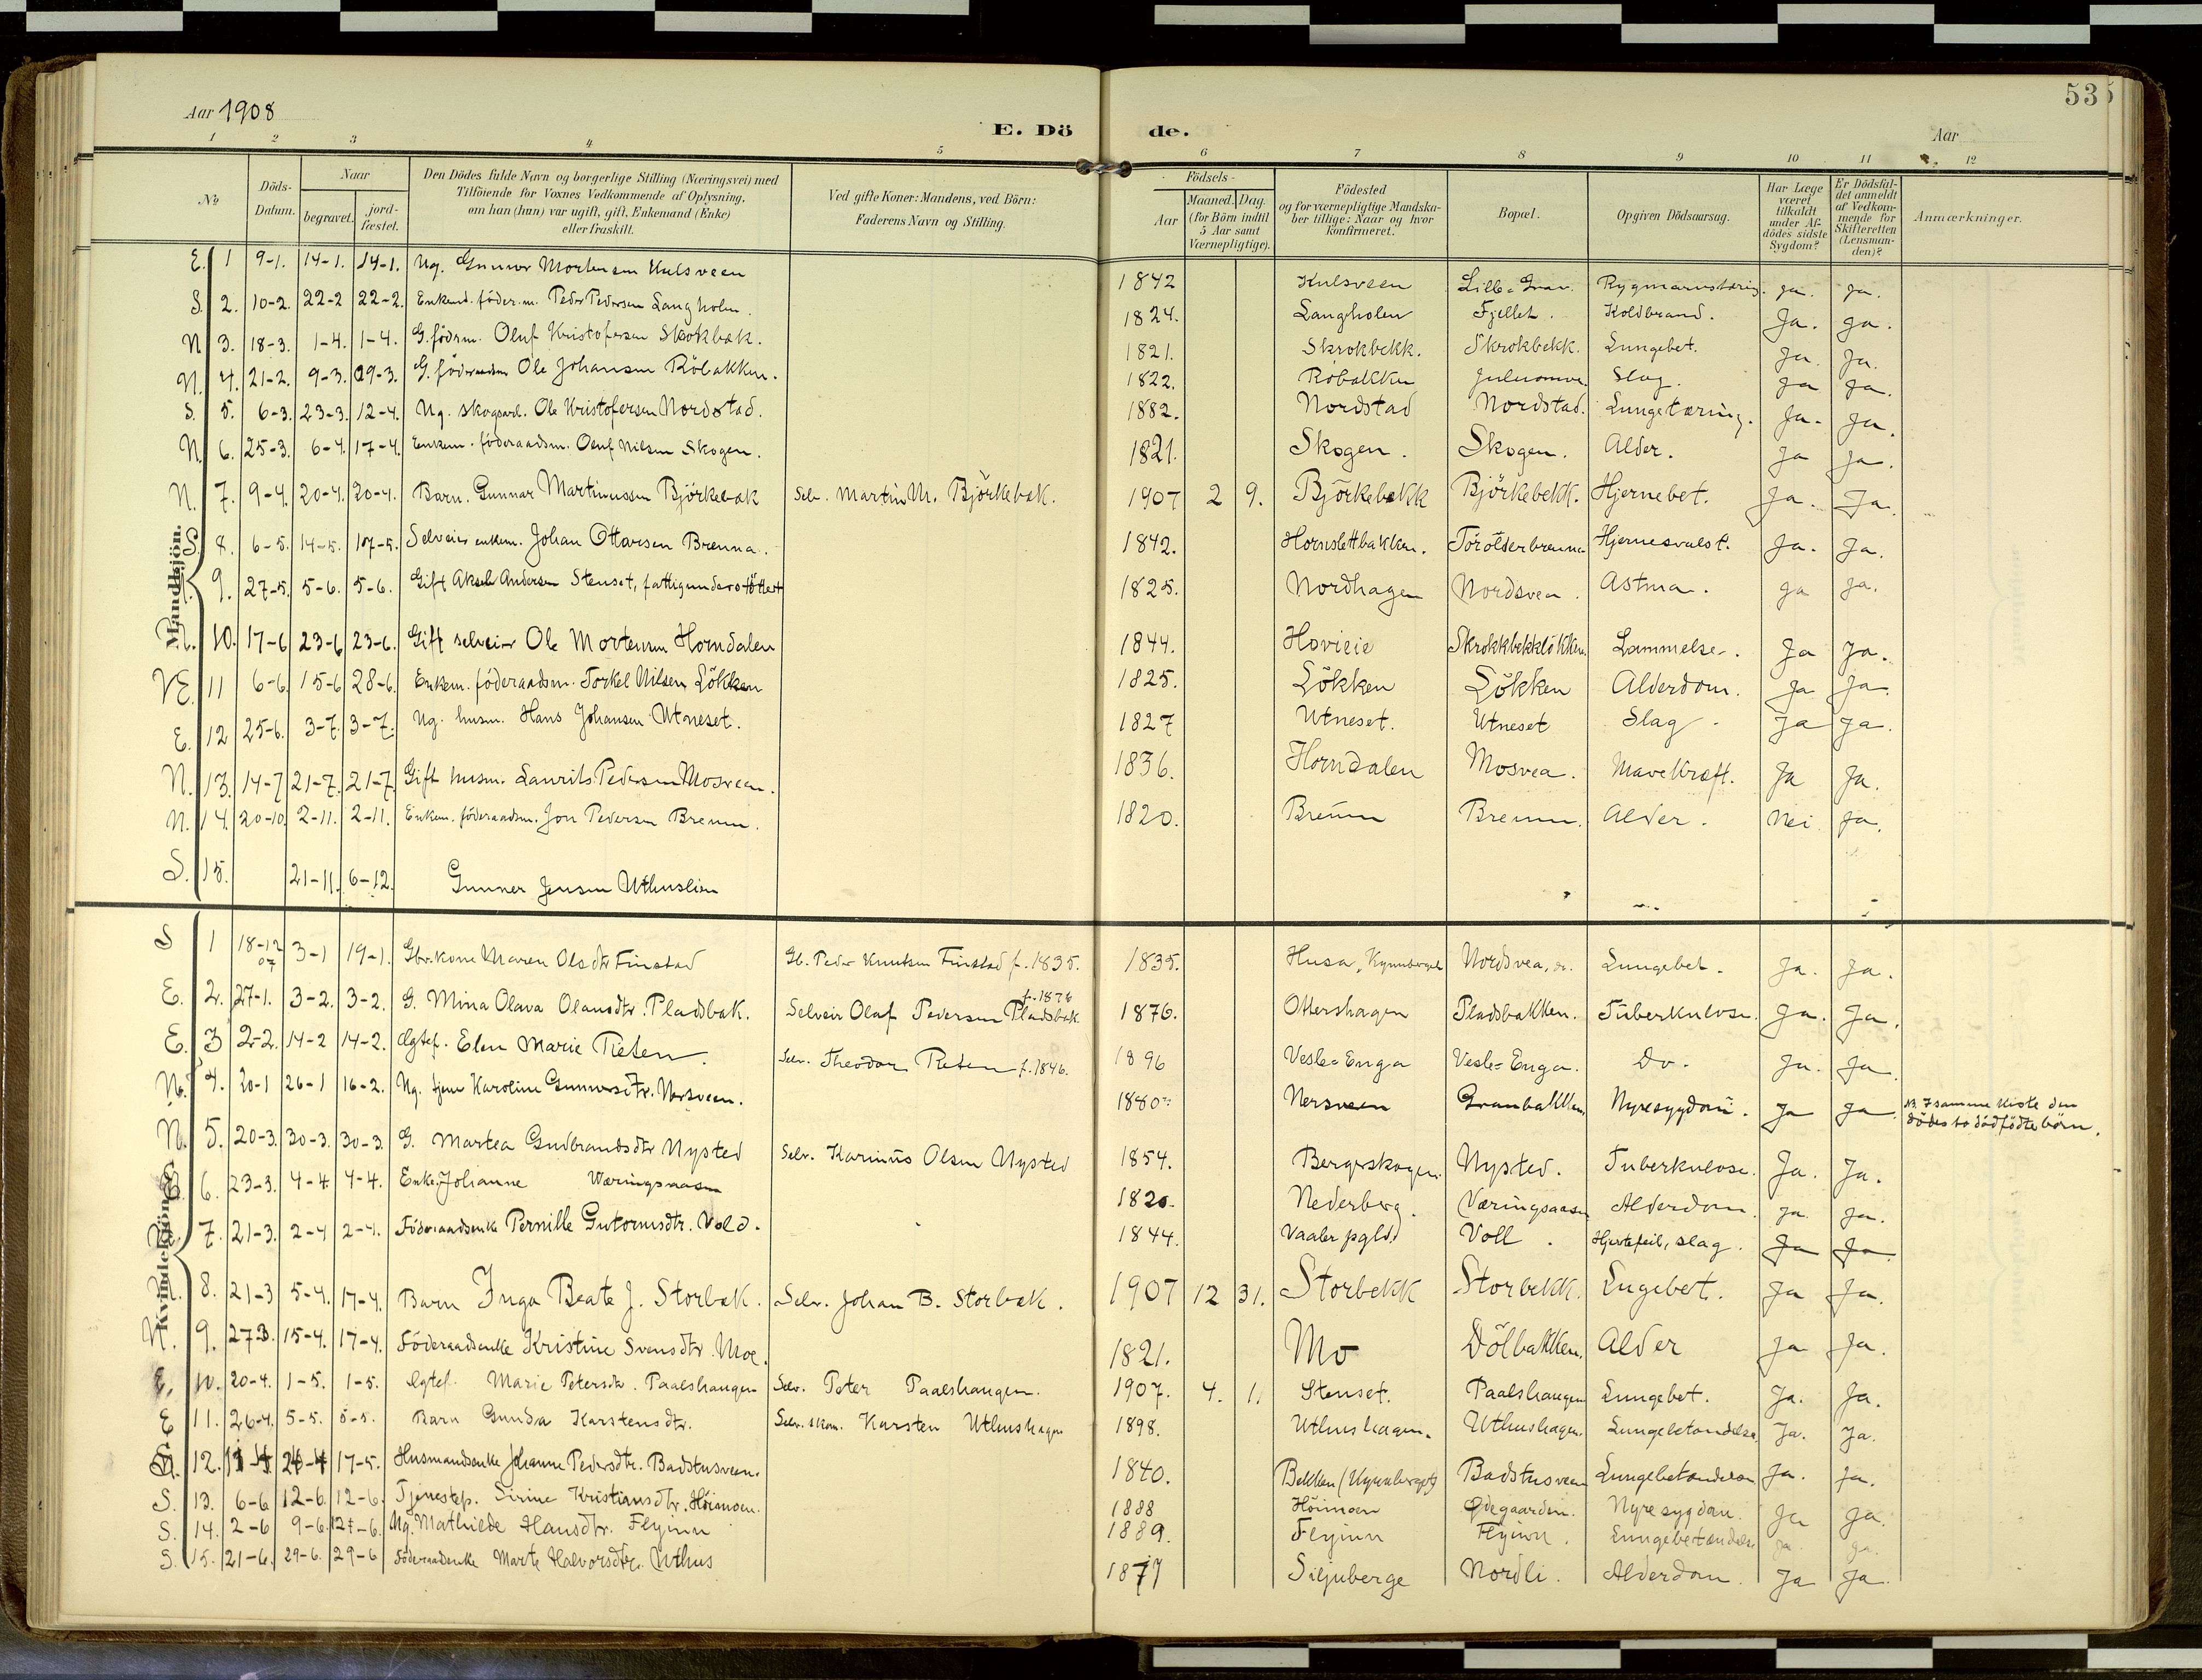 535
Aar 1908
E. Dö de.
Aar
1 2 3 4 5 6 7 8 9 10 11 12
No
Döds-Datum.
Naar
begravet.
jord-fæstet.
Den Dödes fulde Navn og borgerlige Stilling (Næringsvei) med
Tilföiende for Voxnes Vedkommende af Oplysning,
om han (hun) var ugift, gift, Enkemand (Enke)
eller fraskilt.
Ved gifte Koner: Mandens, ved Börn:
Faderens Navn og Stilling.
Födsels-
Aar
Maaned. Dag.
(for Börn indtil
5 Aar samt
Værnepligtige).
Födested
og for værnepligtige Mandska-
ber tillige: Naar og hvor
konfirmeret.
Bopæl.
Opgiven Dödsaarsag.
Har Læge
været
tilkaldt
under Af-
dödes sidste
Sygdom?
Er Dödsfal-
det anmeldt
af Vedkom-
mende for
Skifteretten
(Lensman-
den)?
Anmærkninger.
Mandkjön.
E. 1 9-1. 14-1. 14-1. Ug. Gunner Mortensen Kulsveen 1842 Kulsveen ja. ja.
S. 2. 10-2. 22-2 22-2. Enkemd. föder.m. Peder Pedersen Langholen. 1824. Langholen Fjellet. Koldbrand. Ja. ja.
N 3. 18-3. 1-4. 1-4. G. födrm. Oluf Kristofersen Skrokbæk. 1821. Skrokbekk. Skrokbekk. Lungebet. Ja. Ja.
N. 4. 21-2. 9-3. 29-3. G. föderaadsm Ole Johansen Röbakken. 1822. Röbakken Slag. Ja Ja.
S. 5. 6-3. 23-3. 12-4. Ug. skogsarb. Ole Kristofersen Nordstad. 1882. Nordstad Nordstad. Lungetæring. Ja. Ja.
N. 6. 25-3. 6-4. 17-4. Enkem. föderaadsm. Oluf Nilsen Skogen. 1821. Skogen. Skogen. Alder. Ja Ja.
N. 7. 9-4. 20-4. 20-4. Barn. Gunnar Martinussen Björkebæk Selv. Martin M. Björkebæk. 1907 2 9. Björkebekk Björkebekk. Hjernebet. Ja. Ja.
S. 8. 6-5. 14-5. 17-5. Selveier enkem. Johan Ottarsen Brenna. 1842. Hornslettbakken. Hjernesvulst. Ja. Ja.
9. 27-5. 5-6. 5-6. Gift Aksel Andersen Stenset, fattigunderstöttet 1825. Nordhagen Nordsvea. Astma. Ja Ja.
N. 10. 17-6 23-6 23-6. Gift selveier Ole Mortensen Horndalen 1844. Hovieie Skrokkbekklökken. Lammelse. Ja Ja.
VE. 11 6-6. 15-6 28-6. Enkem. föderaadsm. Torkel Nilsen Lökken 1825. Lökken Lökken Alderdom. Ja Ja.
E. 12 25-6. 3-7. 3-7. Ug. husm. Hans Johansen Utneset. 1827 Utneset. Utneset Slag. Ja Ja.
N. 13. 14-7 21-7. 21-7 Gift husm. Laurits Pedersen Mosveen. 1836. Horndalen Mosvea. Mavekræft. Ja Ja.
N. 14. 20-10. 2-11. 2-11. Enkem. föderaadsm. Jon Pedersen Brenn. 1820. Brenn Brenn. Alder. Nei Ja.
S. 15. 21-11. 6-12. Gunner Jensen Uthuslien
Kvindekjön.
S 1 18-12 07 3-1 19-1. Gbr.kone Maren Olsdtr Finstad Gb. Peder Knutsen Finstad f. 1835. 1835. Husa, Kynnberget Nordsvea, Lungebet. Ja. Ja.
E. 2. 27-1. 3-2. 3-2. G. Mina Olava Olausdtr. Pladsbak. Selveir Olaf Pedersen Pladsbak f. 1876 1876. Ottershagen Pladsbakken. Tuberkulose. Ja. Ja.
E. 3 2-2. 14-2 14-2. Ægtef. Elen Marie Reten. Selv. Theodor Reten f. 1846. 1896 Vesle=Enga Vesle=Enga. Do. Ja. Ja.
N. 4. 20-1 26-1 16-2. Ug. tjene Karoline Gunnersdtr. Nersveen. 1880 Nersveen Granbakken Nyresygdom. Ja Ja. NB. I samme kiste den
dödes to dödfödte börn.
N. 5. 20-3. 30-3. 30-3. G. Martea Gudbrandsdtr Nysted Selv. Karinus Olsen Nysted 1854. Bergerskogen. Nysted. Tuberkulose. Ja. Ja.
6. 23-3. 4-4. 4-4. Enke. Johanne Wæringsaasen 1820. Nederberg. Væringsaasen Alderdom. Ja. Ja.
7. 21-3. 2-4 2-4. Föderaadsenke Pernille Gutormsdtr. Vold. 1844. Vaaler pgld. Voll. Hjertefeil, slag. Ja Ja
N. 8. 21-3 5-4. 17-4. Barn Inga Beate J. Storbæk. Selv. Johan B. Storbæk. 1907 12 31. Storbekk Storbekk. Lngebet. Ja Ja.
N. 9. 27-3. 15-4. 17-4. Föderaadsenke Kristine Svensdtr. Moe. 1821. Mo Dölbakken. Alder Ja Ja.
E. 10. 20-4. 1-5. 1-5. Ægtef. Marie Petersdtr. Paalshaugen Selv. Peter Paalshaugen. 1907. 4. 1. Stenset. Paalshaugen Lungebet. Ja. Ja.
E 11. 26-4. 5-5. 5-5. Barn Gunda Karstensdtr. Selv. skom. Karsten Uthushagen 1898. Uthushagen. Uthushagen. Lungebetændelse Ja. Ja.
12. 24-4 17-5. Husmandsenke Johanne Pedersdtr. Badstusveen. 1840. Bekken (Kynnberget) Badstusveen Lungebetændelse Ja. Ja.
S. 13. 6-6 12-6. 12-6. Tjenestep. Sirine Kristiansdtr. Höimoen. 1888 Höimoen Ödegaarden. Nyresygdom. Ja Ja.
S. 14. 2-6 9-6. 27-6. Ug. Mathilde Hansdtr. Flyinn 1889. Flyinn Flyinn. Lungebetændelse Ja. Ja.
S. 15. 21-6. 29-6. 29-6 Föderaadenke Marte Halvorsdtr. Uthus Siljuberge Nordli. Alderdom. Ja Ja.